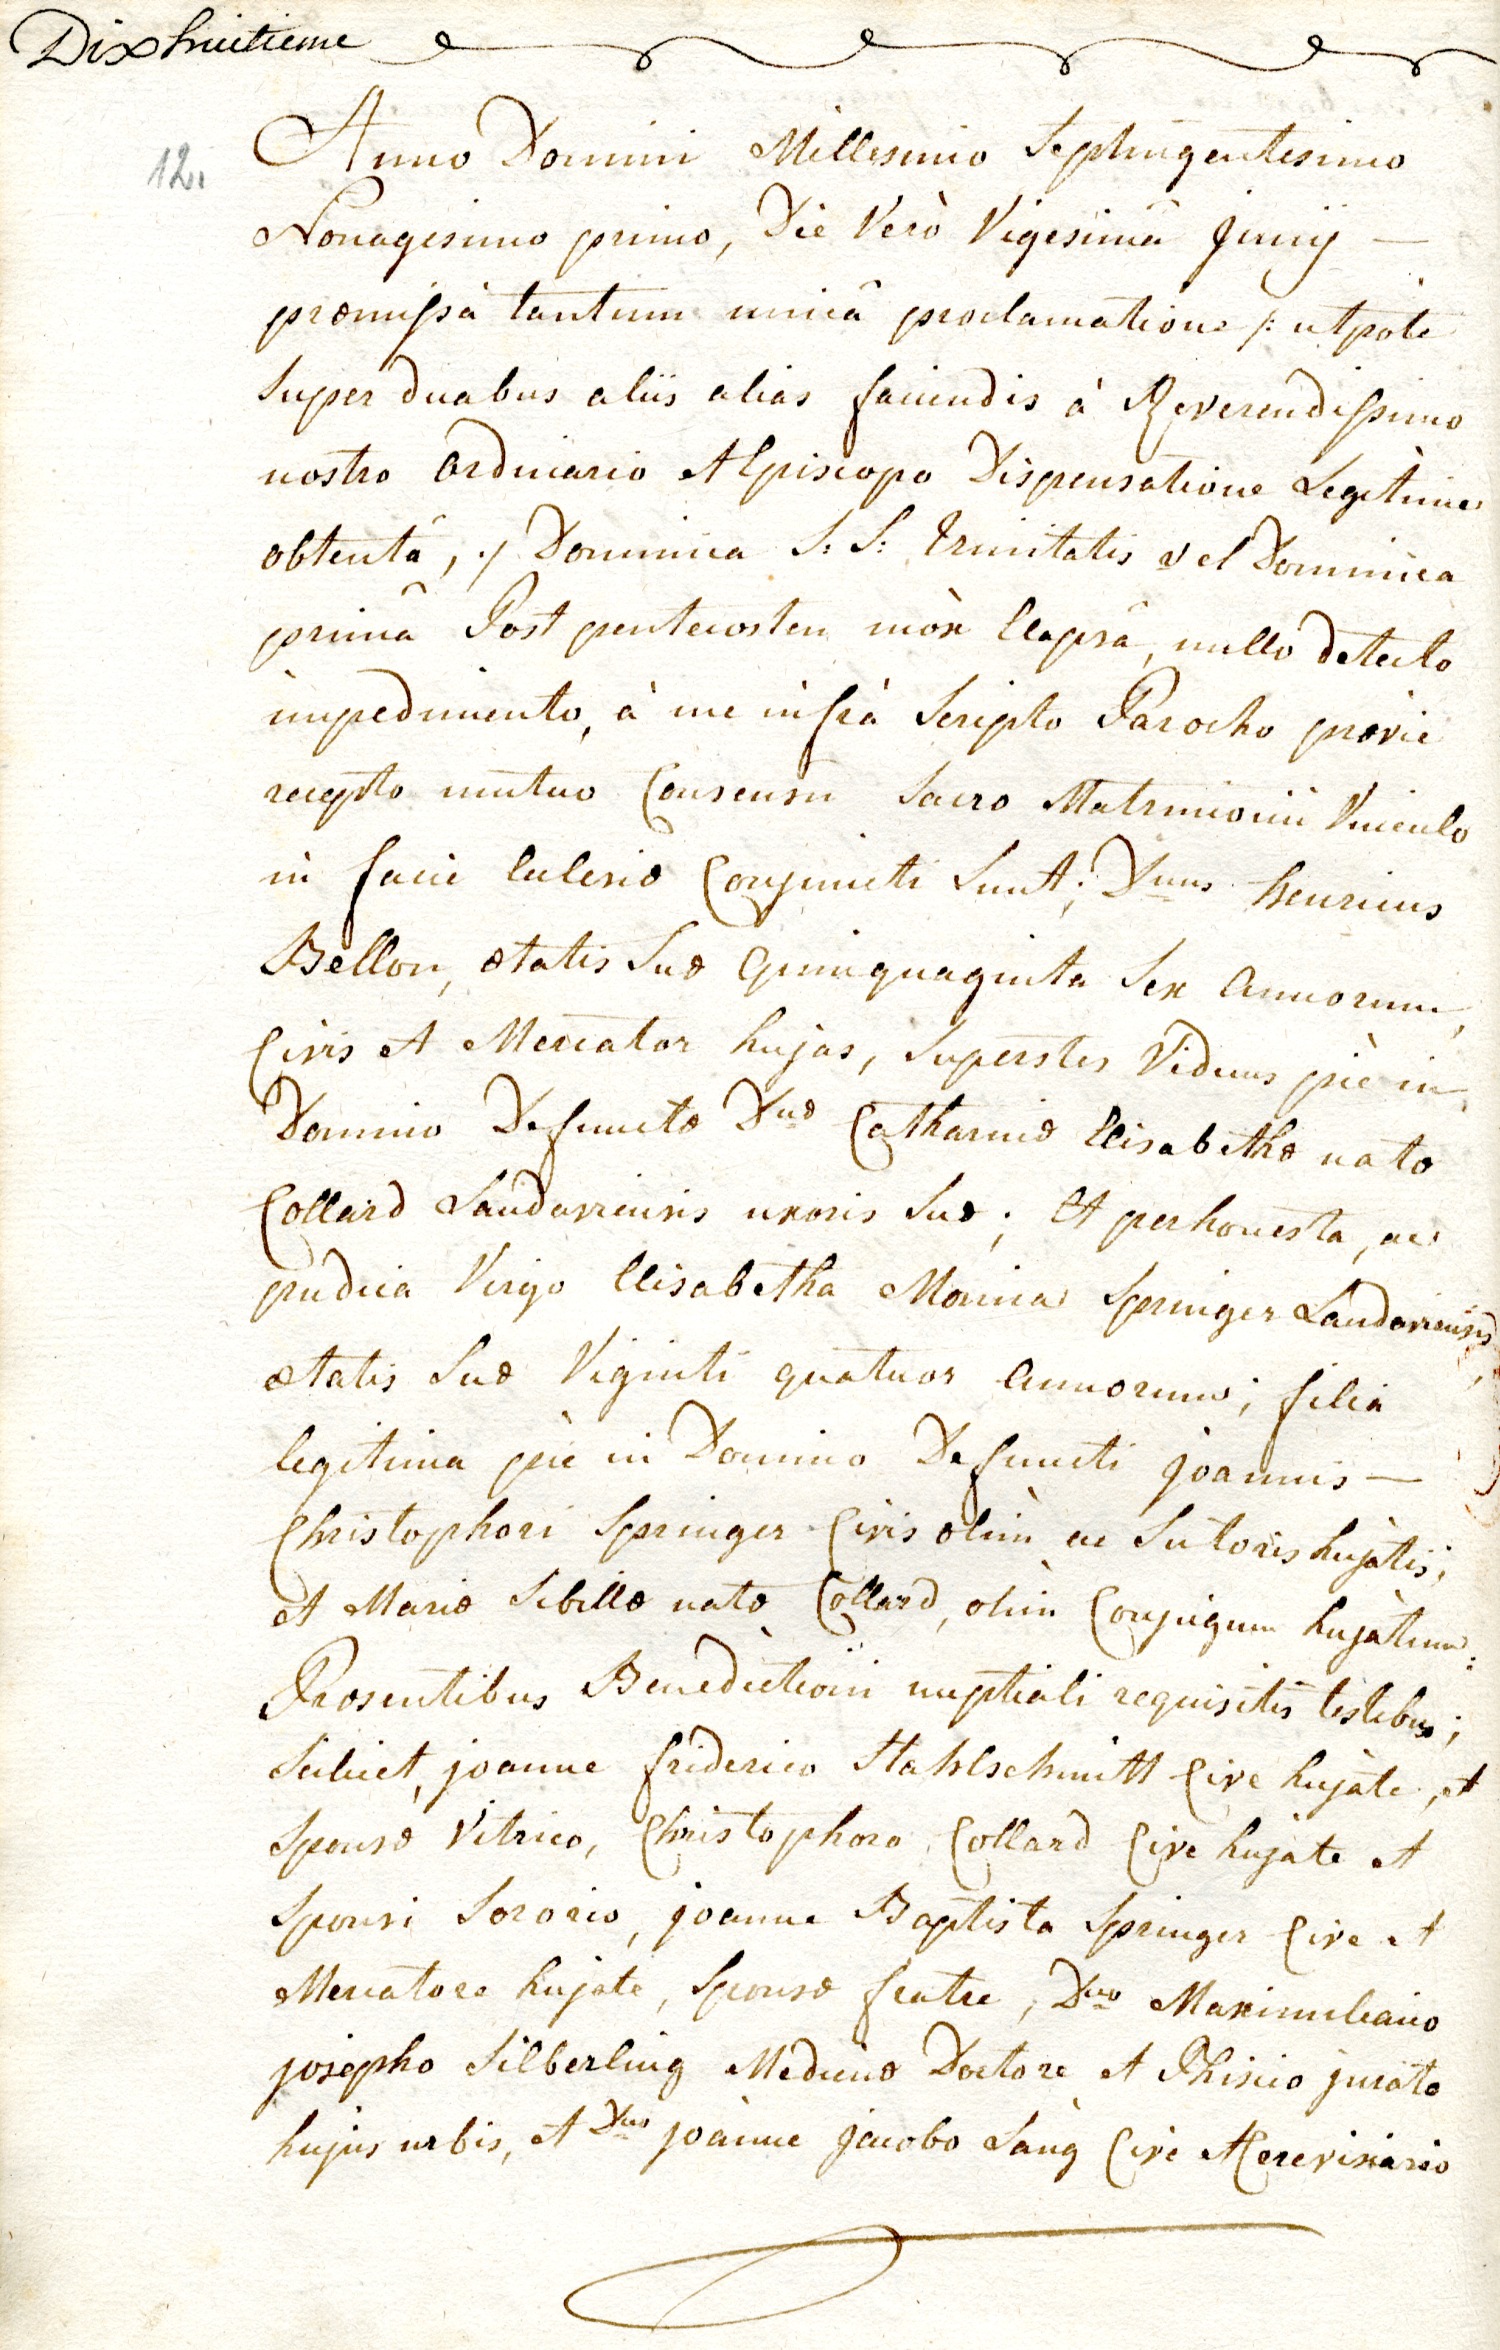 Dixhuitieme
12.
Anno Domini Millesimo Septingentesimo
Nonagesimo primo, Die Verò Vigesimâ junij —
præmissâ tantum unicâ proclamatione /: utpote
super duabus aliis alias faciendis à Reverendissimo
nostro Ordinario et Episcopo Dispensatione Legitime
obtentâ, :/ Dominica S: S: Trinitatis vel Dominica
primâ Post pentecosten mòx Elapsâ, nullo detecto
impedimento, à me infrà Scripto Parocho prævie
recepto mutuo Consensu Sacro Matrimonii Vinculo
in facie Ecclesiæ Conjuncti Sunt; Dnus henricus
Bellon, ætatis Suæ Quinquaginta Sex Annorum,
Civis et Mercator hujas, Superstes Viduus piè in
Domino Defunctæ Dnæ Catharinæ Elisabethæ natæ
Collard Landaviensis uxoris Suæ; Et perhonesta, ac
pudica Virgo Elisabetha Monica Springer Landaviensis,
ætatis Suæ Viginti quatuor Annorum; filia
legitima piè in Domino Defuncti joannis —
Christophori Springer Civis olim ac Sutoris hujàtis;
et Mariæ Sibillæ natæ Collard, olim Conjugum hujàtum:
Præsentibus Benedictioni nuptiali requisitis testibus;
Scilicet, joanne friderico Stahlschmitt Cive hujàte, et
Sponsæ Vitrico, Christophoro Collard Cive hujate et
Sponsi Sororio, joanne Baptista Springer Cive et
Mercatore hujate, Sponsæ fratre, Dno Maximiliano
josepho Silberling Medicinæ Doctore et Phisico jurato
hujus urbis, et Dno joànne jacobo Làng Cive et Cerevisiario